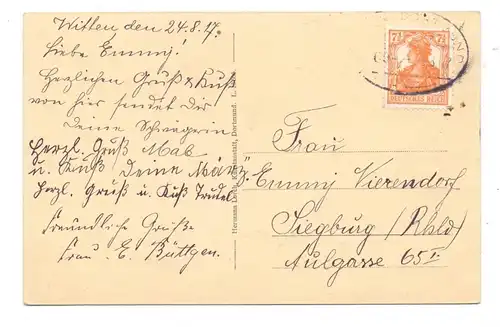 Witten, den 24.8.17.
Liebe Emmy!
Herzlichen Gruß & Kuß
von hier sendet dir
Deine Schwägerin
Herzl. Gruß
u. Kuß Deine
herzl. Gruß u. Kuß Trudel
Freundliche Grüße
Frau. E. Büttgen.
Dortmund.
7½ 7½
DEUTSCHES REICH
Frau
Emmy Vierendorf
Siegburg / Rhld)
Aulgasse 65I